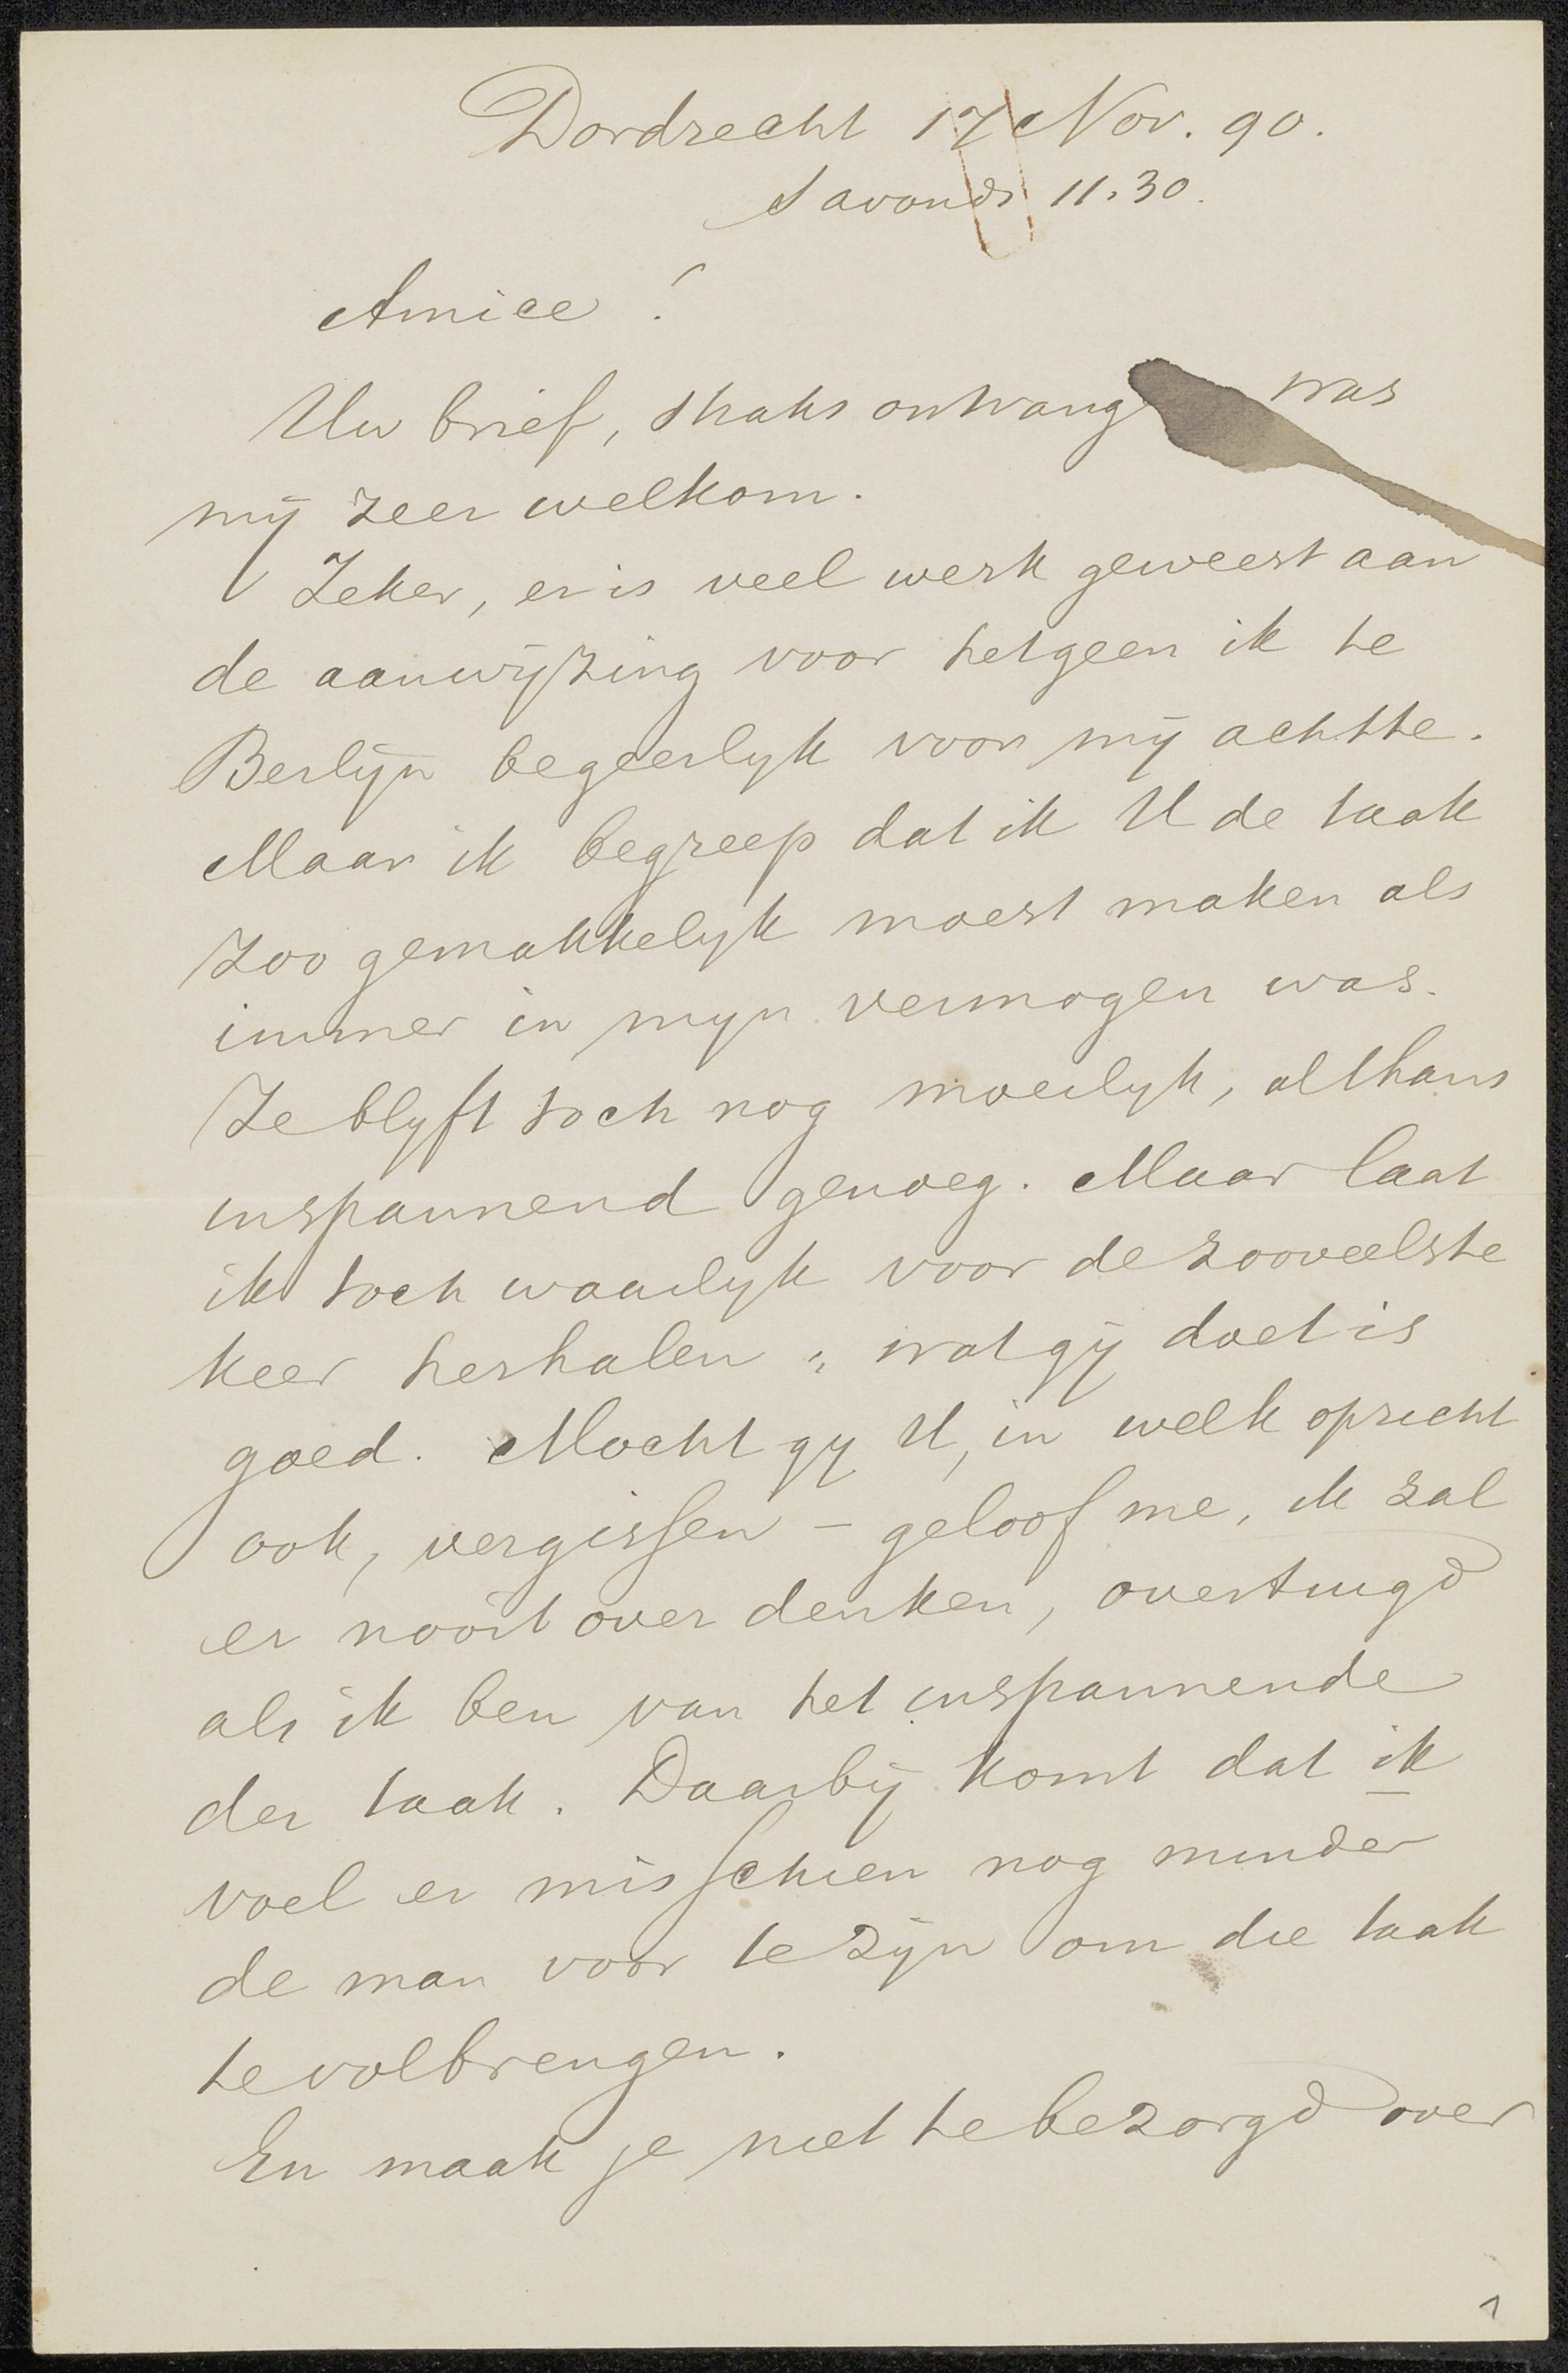 Dordrecht 17 Nov. 90.
s avonds 11.30.
Amice!
Uw brief, straks ontvangen was
mij zeer welkom.
Zeker, er is veel werk geweest aan
de aanwijzing voor hetgeen ik te
Berlijn begeerlyk voor mij achtte.
Maar ik begreep dat ik U de taak
zoo gemakkelyk moest maken als
immer in myn vermogen was.
Ze blyft toch nog moeilyk, althans
inspannend genoeg. Maar laat
ik toch waarlyk voor de zooveelste
keer herhalen: wat gij doet is
goed. Mocht gy U, in welk opzicht
ook, vergissen – geloof me, ik zal
er nooit over denken, overtuigd
als ik ben van het inspannende
der taak. Daarbij komt dat ik
voel er misschien nog minder
de man voor te zijn om die taak
te volbrengen.
En maak je niet te bezorgd over
1